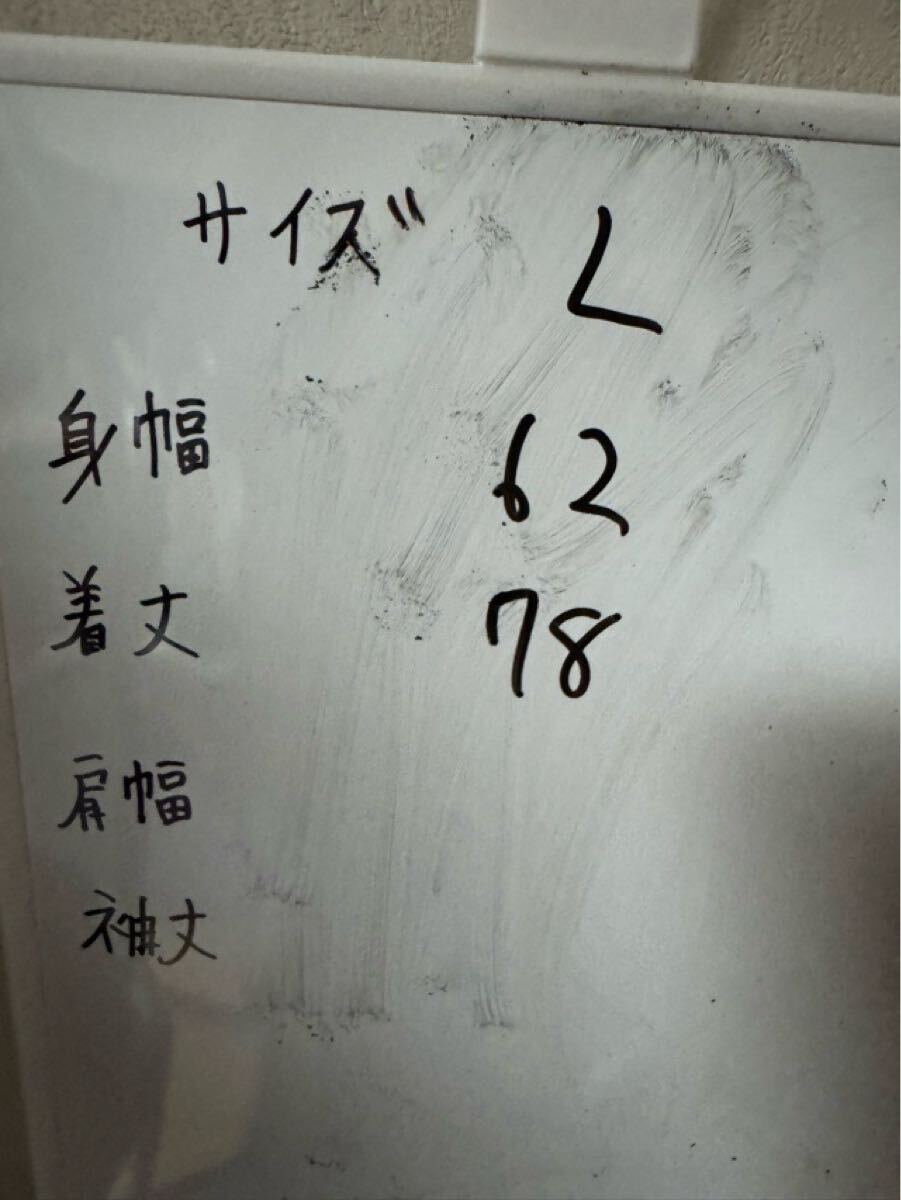 サイズ L
身幅 62
着丈 78
肩幅
袖丈